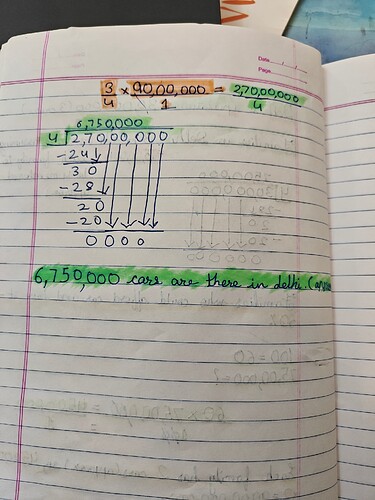 Date
Page
3/4 × 90,00,000/1 = 2,70,00,000/4
6,750,000
4 2,70,00,000
-24
30
-28
20
-20
0000
6,750,000 cars are there in delhi.